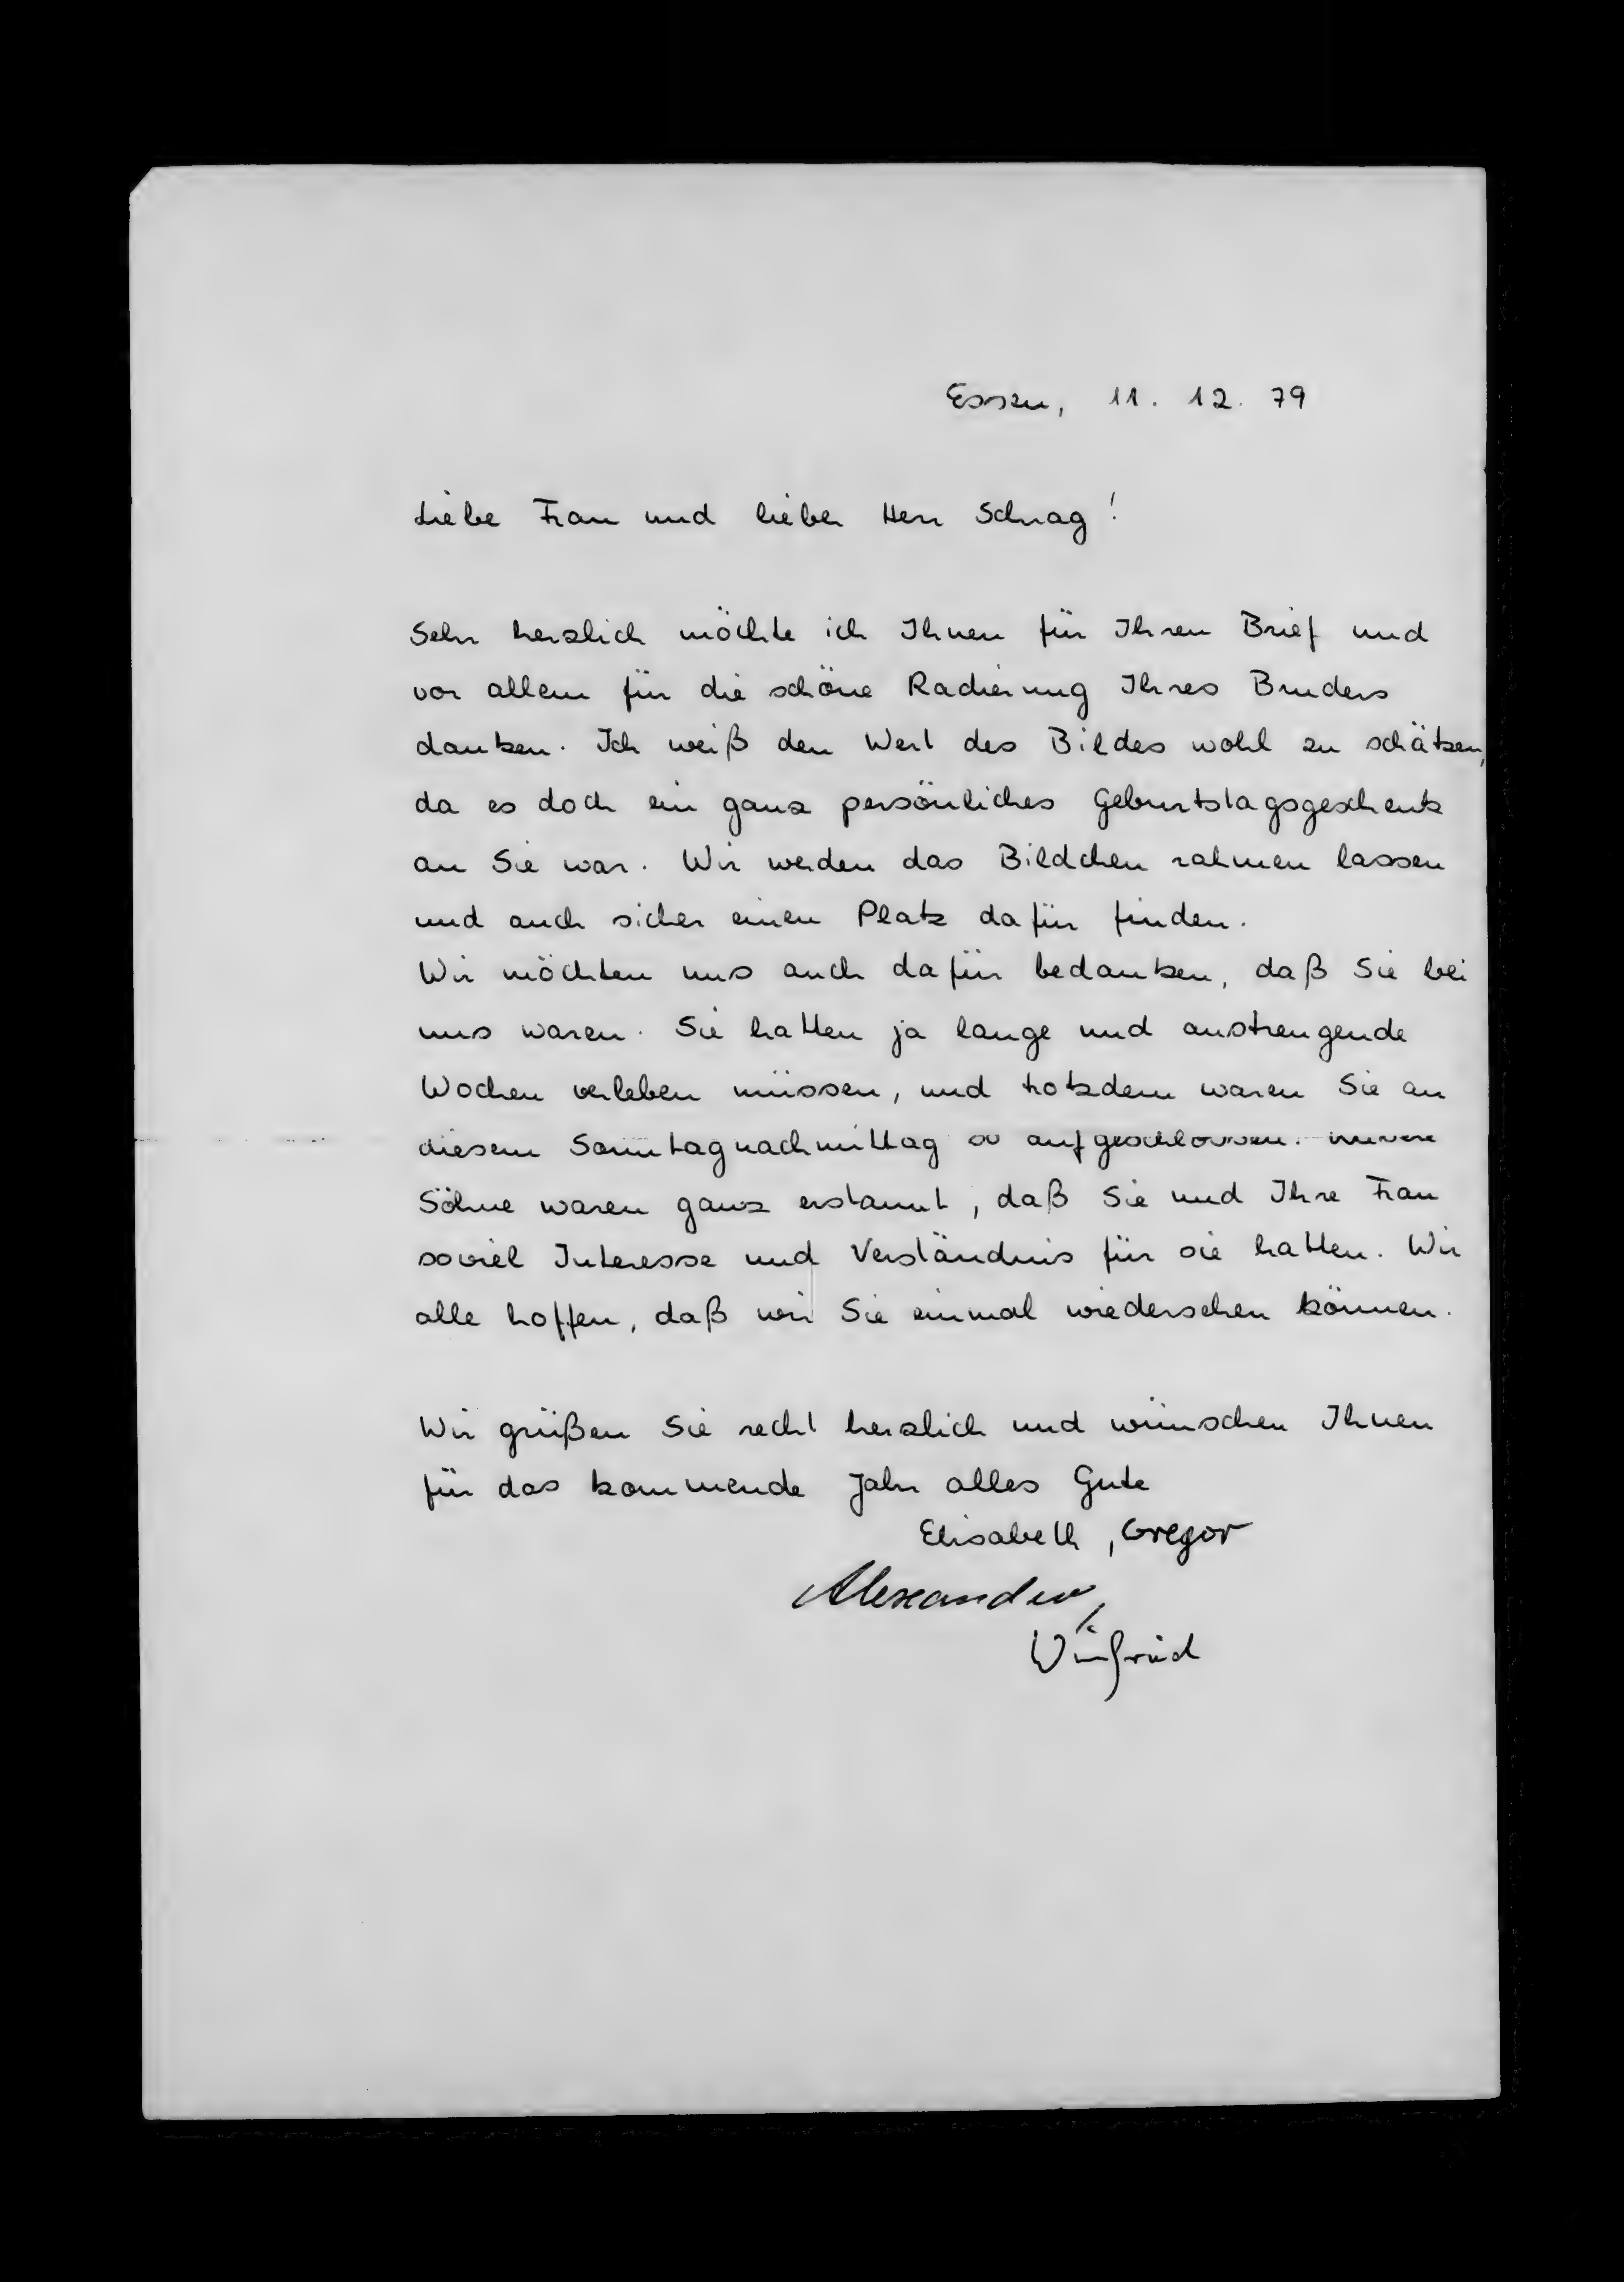 Essen, 11. 12. 79
Liebe Frau und lieber Herr Schrag!
Sehr herzlich möchte ich Ihnen für Ihren Brief und
vor allem für die schöne Radierung Ihres Bruders
danken. Ich weiß den Wert des Bildes wohl zu schätzen,
da es doch ein ganz persönliches Geburtstagsgeschenk
an Sie war. Wir werden das Bildchen rahmen lassen
und auch sicher einen Platz dafür finden.
Wir möchten uns auch dafür bedanken, daß Sie bei
uns waren. Sie hatten ja lange und anstrengende
Wochen verleben müssen, und trotzdem waren Sie an
diesem Sonntagnachmittag so aufgeschlossen. Unsere
Söhne waren ganz erstaunt, daß Sie und Ihre Frau
soviel Interesse und Verständnis für sie hatten. Wir
alle hoffen, daß wir Sie einmal wiedersehen können.
Wir grüßen Sie recht herzlich und wünschen Ihnen
für das kommende Jahr alles Gute
Elisabeth, Gregor
Alexander,
Winfried